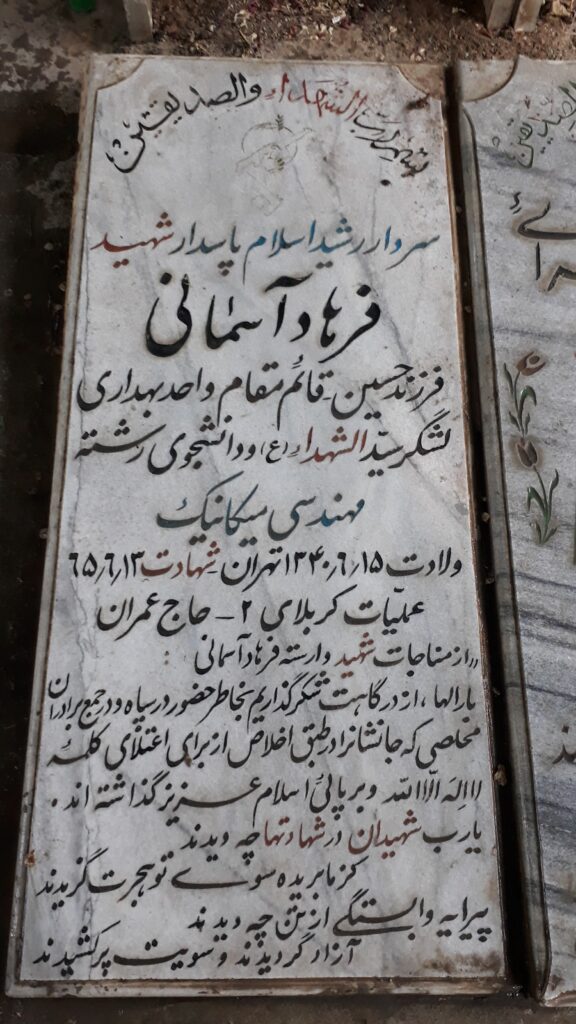 بسم رب الشهداء والصدیقین
سردار رشید اسلام پاسدار شهید
فرهاد آسمانی
فرزند حسین قائم مقام واحد بهداری
لشگر سیّد الشهداء (ع) و دانشجوی رشته
مهندسی مکانیک
ولادت ۱۵/۶/۱۳۴۰ تهران شهادت ۶۵/۶/۱۳
عملیّات کربلای ۲ - حاج عمران
«از مناجات شهید وارسته فرهاد آسمانی
بارالها، از درگاهت شکرگذاریم بخاطر حضور در سپاه و در جمع برادران
مخلصی که جانشانرا در طبق اخلاص از برای اعتلای کلمهٔ
لااِلهَ اِلّا الله و برپائی اسلام عزیز گذاشته اند.
یارب شهیدان در شهادتها چه دیدند
کز ما بریده سوی تو هجرت گزیدند
پیرایه وابستگی از تن چه دیدند
آزاد گردیدند و سویت پرکشیدند
الصدیقین